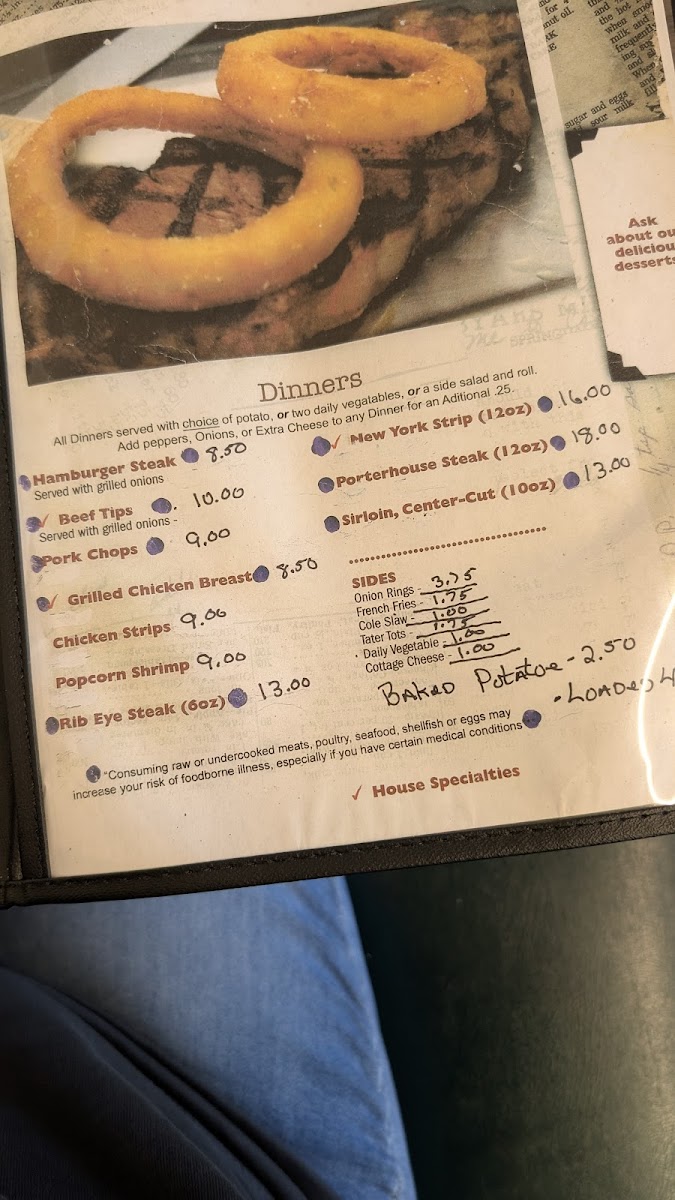 sugar and eggs
sour milk
Ask
about ou
deliciou
desserts
Dinners
All Dinners served with choice of potato, or two daily vegatables, or a side salad and roll.
Add peppers, Onions, or Extra Cheese to any Dinner for an Aditional .25.
Hamburger Steak 8.50
Served with grilled onions
✓ Beef Tips 10.00
Served with grilled onions -
Pork Chops 9.00
✓ Grilled Chicken Breast 8.50
Chicken Strips 9.00
Popcorn Shrimp 9.00
Rib Eye Steak (6oz) 13.00
✓ New York Strip (12oz) 16.00
Porterhouse Steak (12oz) 18.00
Sirloin, Center-Cut (10oz) 13.00
SIDES
Onion Rings - 3.75
French Fries - 1.75
Cole Slaw - 1.00
Tater Tots - 1.75
Daily Vegetable - 1.00
Cottage Cheese - 1.00
BAKED Potatoe - 2.50
• LOADED 4
*Consuming raw or undercooked meats, poultry, seafood, shellfish or eggs may
increase your risk of foodborne illness, especially if you have certain medical conditions
✓ House Specialties